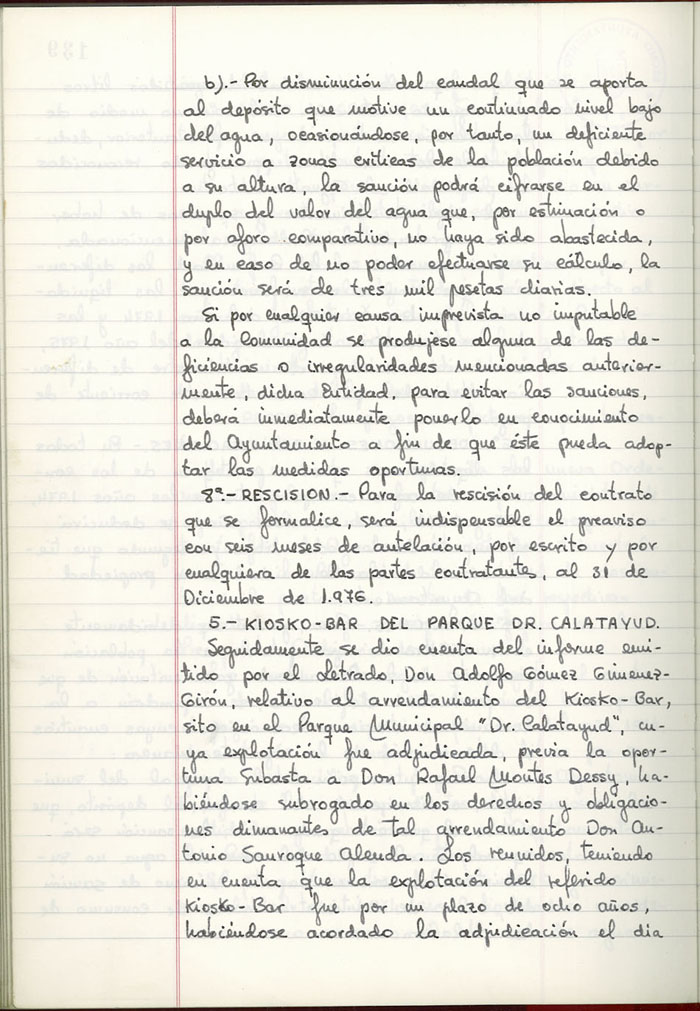 b).- Por disminución del caudal que se aporta
al depósito que motive un continuado nivel bajo
del agua, ocasionándose, por tanto, un deficiente
servicio a zonas críticas de la población debido
a su altura, la sanción podrá cifrarse en el
duplo del valor del agua que, por estimación o
por aforo comparativo, no haya sido abastecida,
y en caso de no poder efectuarse su cálculo, la
sanción será de tres mil pesetas diarias.
Si por cualquier causa imprevista no imputable
a la Comunidad se produjese alguna de las de-
ficiencias o irregularidades mencionadas anterior-
mente, dicha Entidad, para evitar las sanciones,
deberá inmediatamente ponerlo en conocimiento
del Ayuntamiento a fin de que éste pueda adop-
tar las medidas oportunas.
8ª.- RESCISION.- Para la rescisión del contrato
que se formalice, será indispensable el preaviso
con seis meses de antelación, por escrito y por
cualquiera de las partes contratantes, al 31 de
Diciembre de 1.976.
5.- KIOSKO-BAR DEL PARQUE DR. CALATAYUD.
Seguidamente se dio cuenta del informe emi-
tido por el Letrado, Don Adolfo Gómez Gimenez-
Girón, relativo al arrendamiento del Kiosko-Bar,
sito en el Parque Municipal "Dr. Calatayud", cu-
ya explotación fue adjudicada, previa la opor-
tuna Subasta a Don Rafael Montes Dessy, ha-
biéndose subrogado en los derechos y obligacio-
nes dimanantes de tal arrendamiento Don An-
tonio Sanroque Alenda. Los reunidos, teniendo
en cuenta que la explotación del referido
Kiosko-Bar fue por un plazo de ocho años,
habiéndose acordado la adjudicación el día